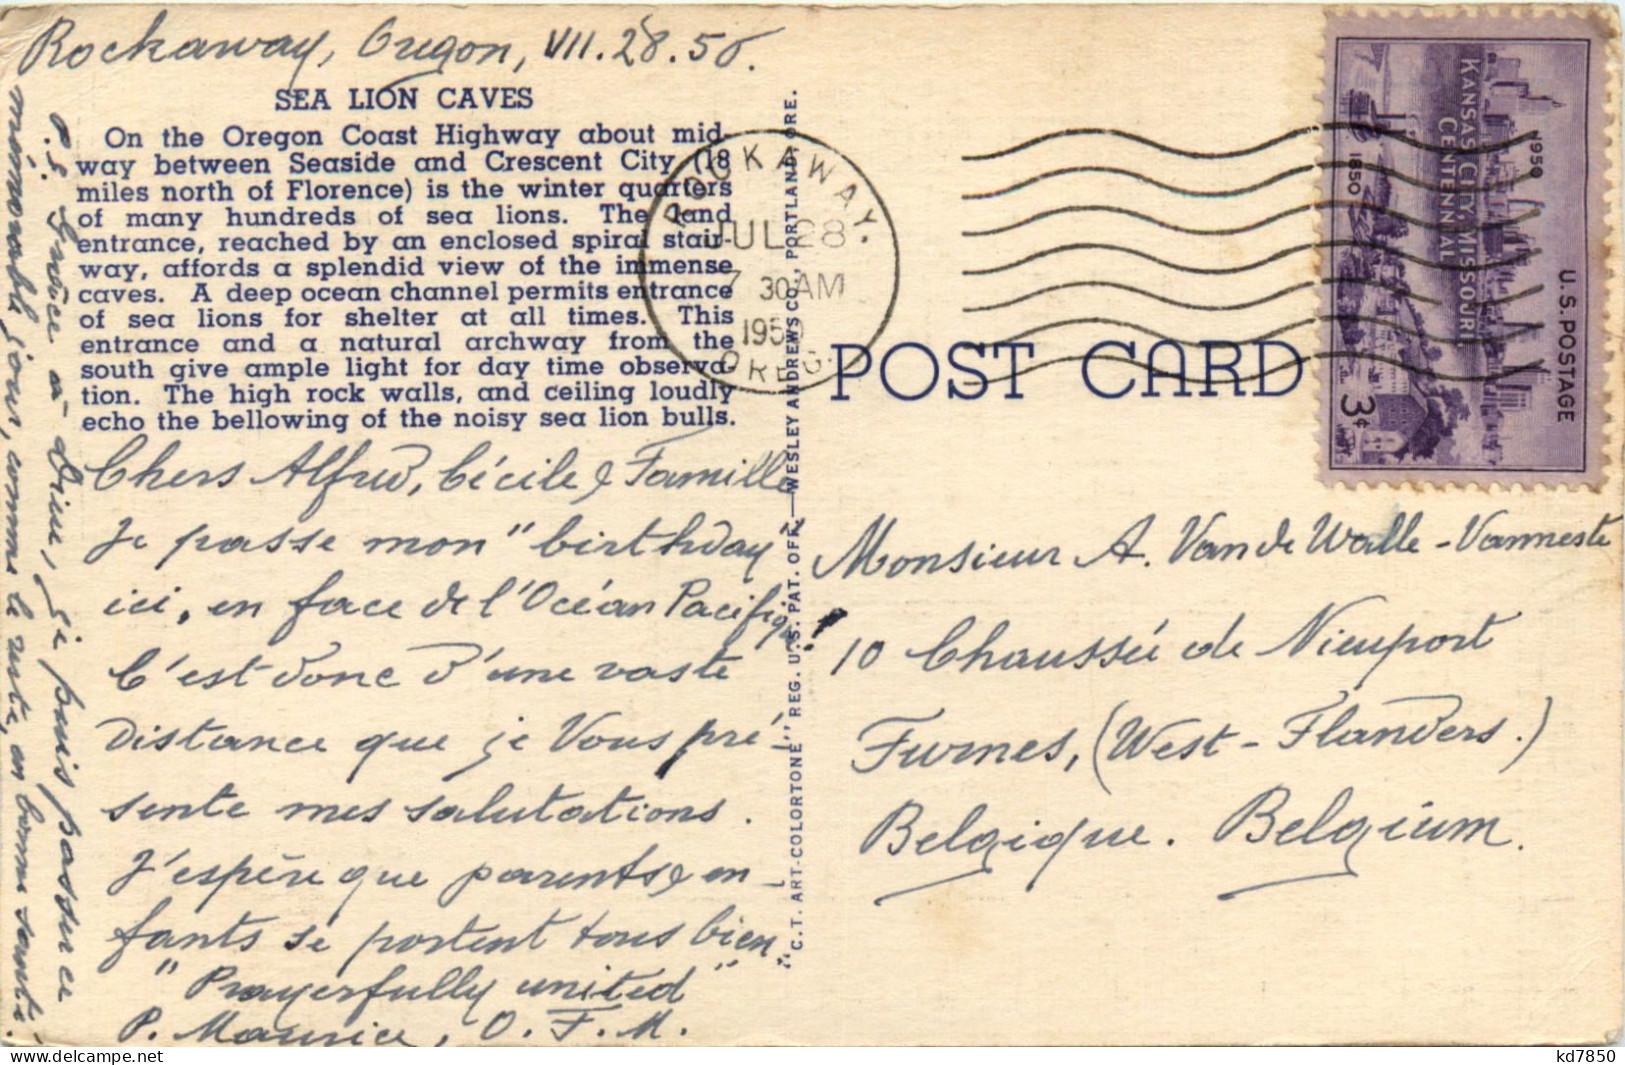 Rockaway, Oregon, VII.28.50.
SEA LION CAVES
On the Oregon Coast Highway about mid-
way between Seaside and Crescent City (18
miles north of Florence) is the winter quarters
of many hundreds of sea lions. The land
entrance, reached by an enclosed spiral stair-
way, affords a splendid view of the immense
caves. A deep ocean channel permits entrance
of sea lions for shelter at all times. This
entrance and a natural archway from the
south give ample light for day time observa-
tion. The high rock walls, and ceiling loudly
echo the bellowing of the noisy sea lion bulls.
Chers Alfred, Cécile & Famille
Je passe mon "birthday"
ici, en face de l'Océan Pacifique!
C'est donc d'une vaste
distance que je Vous pré-
sente mes salutations.
J'espère que parents & en-
fants se portent tous bien.
"Prayerfully united"
P. Maurice, O.F.M.
P.S. Grâce à Dieu, je puis passer ce
mémorable jour, comme le reste, en bonne santé.
"C.T. ART-COLORTONE" REG. U.S. PAT. OFF.—WESLEY ANDREWS CO., PORTLAND, ORE.
ROCKAWAY.
JUL 28
7 30 AM
1950
OREG.
POST CARD
KANSAS CITY, MISSOURI
CENTENNIAL
1950
1850
U.S. POSTAGE
3¢
Monsieur A. Van de Walle-Vanneste
10 Chaussée de Nieuport
Furnes, (West-Flanders.)
Belgique. Belgium.
kd7850